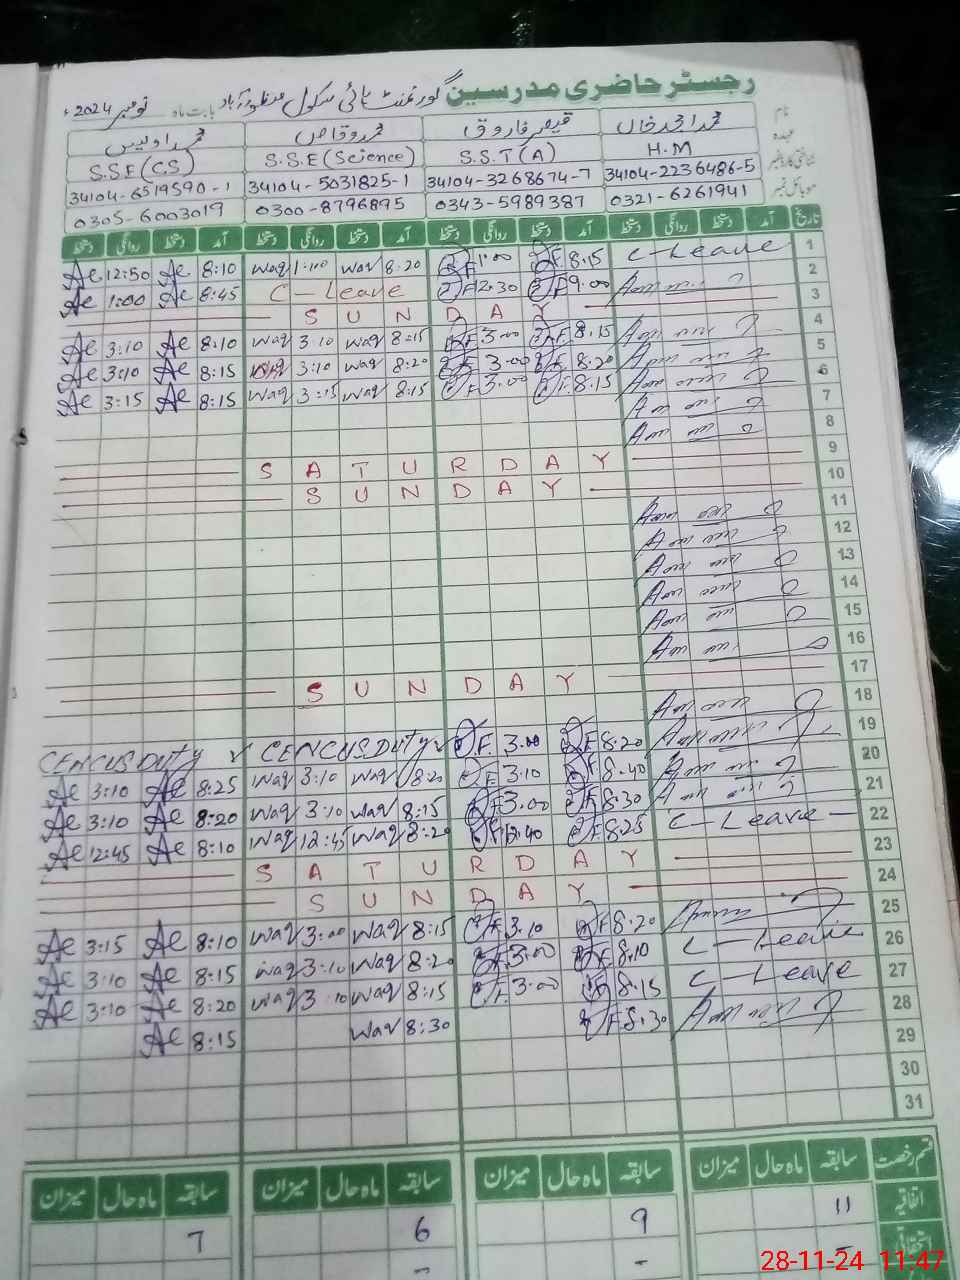 رجسٹر حاضری مدرسین گورنمنٹ ہائی سکول مظفرآباد بابت ماہ نومبر 2024ء
نام محمد امجد خاں قیصر فاروق محمد وقاص محمد اویس
عہدہ H.M S.S.T (A) S.S.E (Science) S.S.E (C.S)
شناختی کارڈ نمبر 34104-2236486-5 34104-3268674-7 34104-5031825-1 34104-6519590-1
موبائل نمبر 0321-6261941 0343-5989387 0300-8796895 0305-6003019
تاریخ آمد دستخط روانگی دستخط آمد دستخط روانگی دستخط آمد دستخط روانگی دستخط آمد دستخط روانگی دستخط
Ae 12:50 Ae 8:10 waq 1:00 waq 8:20 F 1:00 F 8.15 C-Leave 1
Ae 1:00 Ae 8:45 C-Leave F 2.30 F 9.00 2
S U N D A Y 3
Ae 3:10 Ae 8:10 waq 3:10 waq 8:15 F 3.00 F 8.15 4
Ae 3:10 Ae 8:15 waq 3:10 waq 8:20 F 3.00 F 8.20 5
Ae 3:15 Ae 8:15 waq 3:15 waq 8:15 F 3.00 F 8.15 6
7
8
S A T U R D A Y 9
S U N D A Y 10
11
12
13
14
15
16
S U N D A Y 17
18
CENCUS DUTY ✓ CENCUS DUTY ✓ F. 3.00 F 8.20 19
Ae 3:10 Ae 8:25 waq 3:10 waq 8:20 F. 3.10 F 8.40 20
Ae 3:10 Ae 8:20 waq 3:10 waq 8:15 F 3.00 F 8.30 21
Ae 12:45 Ae 8:10 waq 12:45 waq 8:20 F 12.40 F 8.25 C-Leave- 22
S A T U R D A Y 23
S U N D A Y 24
Ae 3:15 Ae 8:10 waq 3:00 waq 8:15 F 3.10 F 8.20 25
Ae 3:10 Ae 8:15 waq 3:10 waq 8:20 F 3.00 F 8.10 C-Leave 26
Ae 3:10 Ae 8:20 waq 3:10 waq 8:15 F 3.00 F 8.15 C-Leave 27
Ae 8:15 waq 8:30 F 8.30 28
29
30
31
قسم رخصت سابقہ ماہ حال میزان سابقہ ماہ حال میزان سابقہ ماہ حال میزان سابقہ ماہ حال میزان
اتفاقیہ 11 9 6 7
استحقاقی - - -
28-11-24 11:47